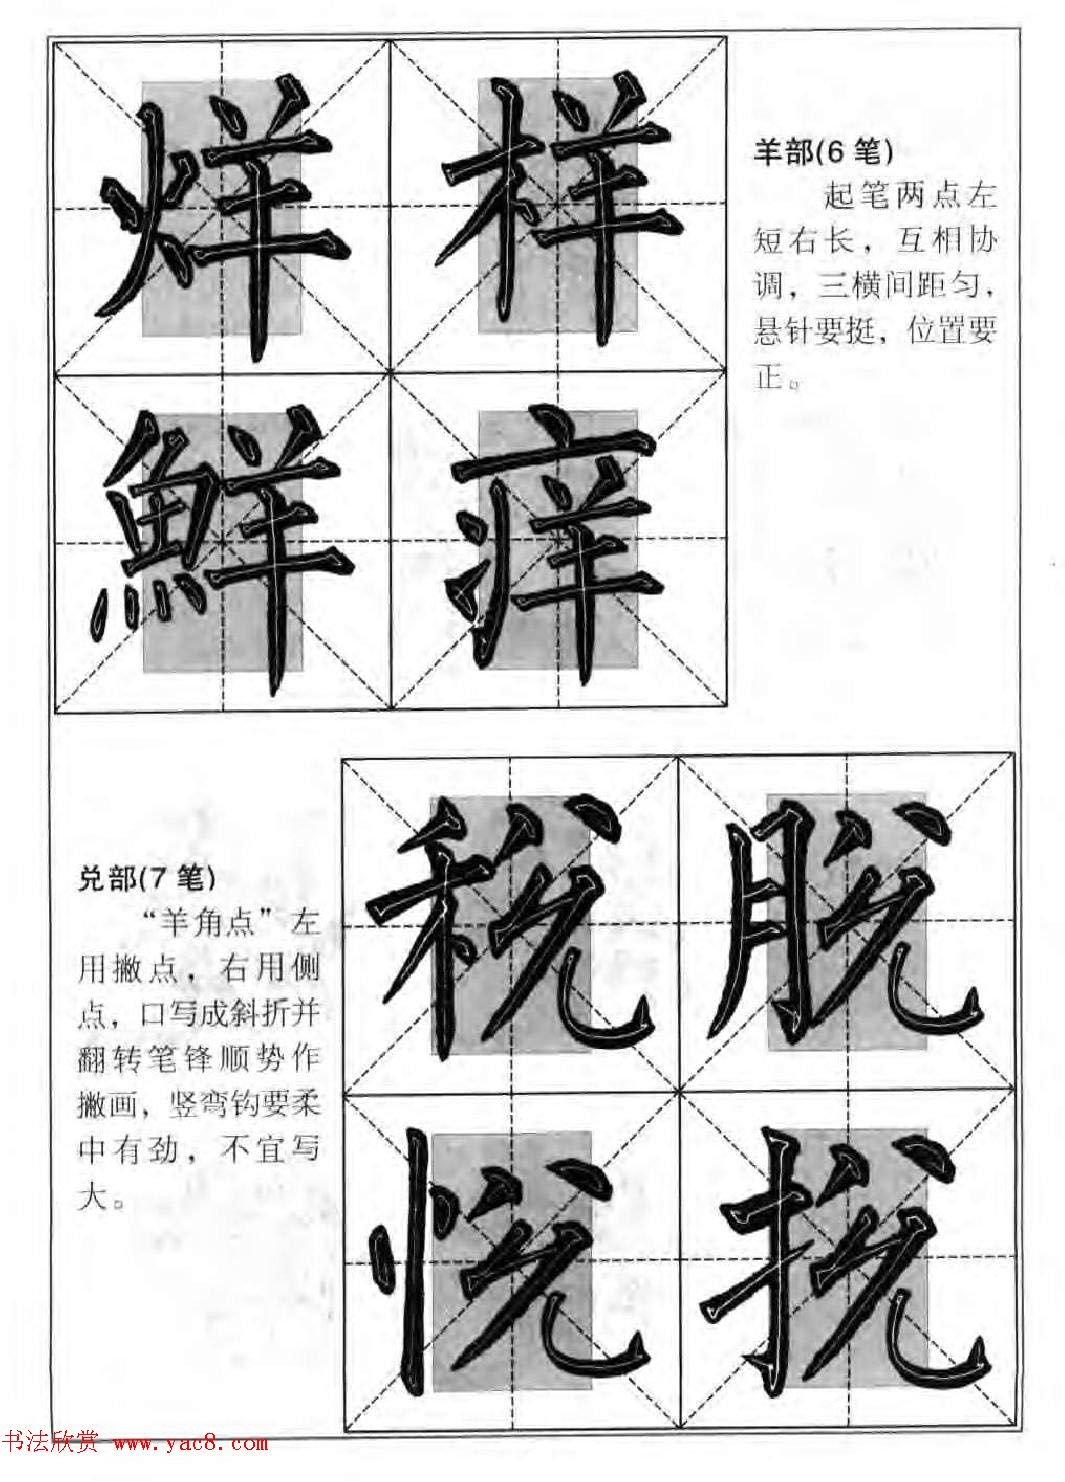 烊 样
羊部(6 笔)
起笔两点左
短右长，互相协
调，三横间距匀，
悬针要挺，位置要
正。
鮮 痒
税 脱
兑部(7 笔)
“羊角点”左
用撇点，右用侧
点，口写成斜折并
翻转笔锋顺势作
撇画，竖弯钩要柔
中有劲，不宜写
大。
悦 挩
书法欣赏 www.yac8.com